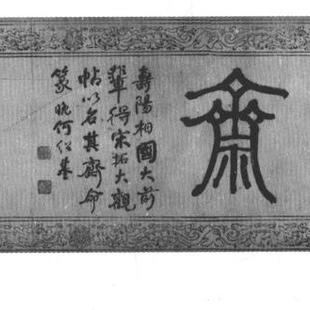 齋
壽陽相國大前
輩得宋拓大觀
帖以名其齋命
篆 晚何紹基